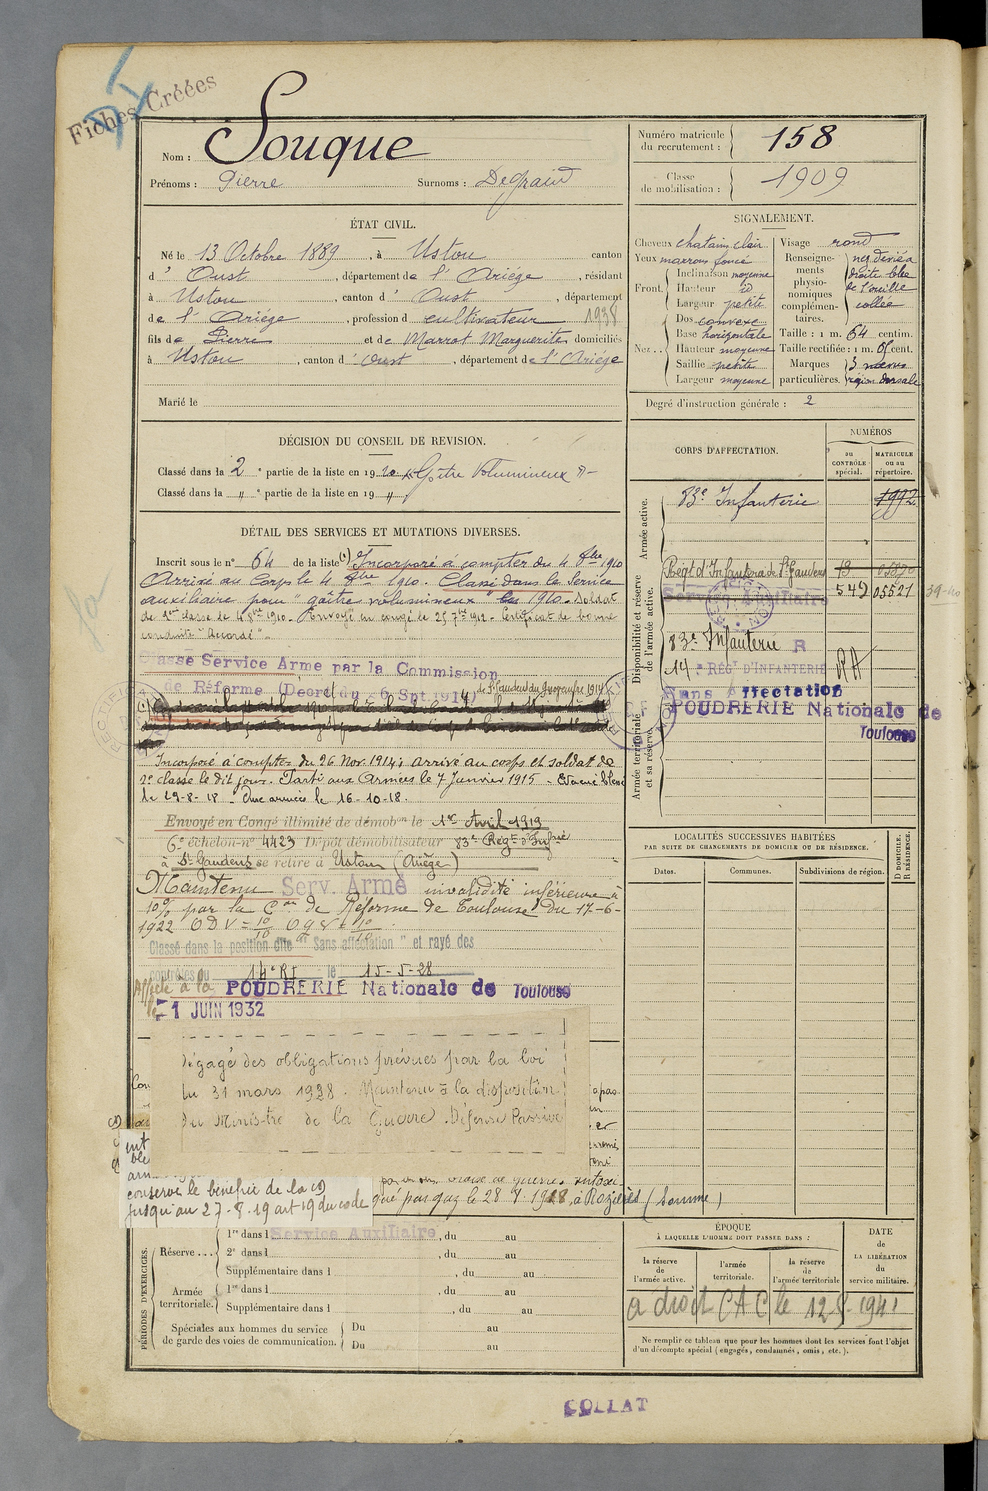 Fiches Créées
Nom : Souque
Prénoms : Pierre Surnoms : Degraid
Numéro matricule du recrutement : 158
Classe de mobilisation : 1909
ÉTAT CIVIL.
Né le 13 Octobre 1889, à Ustou canton
d' Oust, département de l'Ariége, résidant
à Ustou, canton d' Oust, département
de l'Ariége, profession d cultivateur 1938
fils de Pierre et de Marrot Marguerite domiciliés
à Ustou, canton d' Oust, département de l'Ariége
Marié le
SIGNALEMENT.
Cheveux chatain clair
Yeux marrons foncé
Front. Inclinaison moyenne
Hauteur id
Largeur petite
Nez.. Dos convexe
Base horizontale
Hauteur moyenne
Saillie petite
Largeur moyenne
Visage rond
Renseignements physionomiques complémentaires. nez dévié à
droite
de l'oreille
collée
Taille : 1 m. 64 centim.
Taille rectifiée : 1 m. cent.
Marques particulières. 3
région dorsale
Degré d'instruction générale : 2
DÉCISION DU CONSEIL DE REVISION.
Classé dans la 2e partie de la liste en 1910 Goître Volumineux
Classé dans la " e partie de la liste en 19 "
DÉTAIL DES SERVICES ET MUTATIONS DIVERSES.
Inscrit sous le n° 64 de la liste (1) Incorporé à compter du 4 8bre 1910
Arrivé au Corps le 4 8bre 1910. Classé dans le Service
auxiliaire pour "goître volumineux" 1910. Soldat
de 2me classe le 4 8bre 1910. Envoyé en congé le 25 7bre 1912. Certificat de bonne
conduite "Accordé".
Classé Service Armé par la Commission
de Réforme (Décret du 26 Spt. 1914) de St Gaudens du 1914
Incorporé à compter du 26 Nov. 1914; arrivé au corps et soldat de
2e classe le dit jour. Parti aux Armées le 7 Janvier 1915 - Evacué blessé
le 29-8-18 - Aux armées le 16-10-18.
Envoyé en Congé illimité de démobon le 1er Avril 1919
6e échelon n° 4423 Dépôt démobilisateur 83e Régt d'Infrie
à St Gaudens se retire à Ustou (Ariège)
Maintenu Serv. Armé invalidité inférieure à
10% par la Con de Réforme de Toulouse du 17-6-
1922 ODV = 10/10 OGV = 10/10
Classé dans la position dite "Sans affectation" et rayé des
contrôles du 14e RI le 15-5-28
Affecté à la POUDRERIE Nationale de Toulouse
le 1 JUIN 1932
Dégagé des obligations prévues par la loi
du 31 mars 1928. Maintenu à la disposition
du Ministre de la Guerre. Défense Passive
conserve le bénéfice de la
jusqu'au 27-8-19 art 19 du code
par gaz le 28 8 1918, à Rozières (Somme)
CORPS D'AFFECTATION.
NUMÉROS
au CONTRÔLE spécial.
MATRICULE ou au répertoire.
Armée active.
83e Infanterie 1992
Disponibilité et réserve de l'armée active.
Régt d'Infanterie de St Gaudens 13
Service Auxiliaire 542 05521 39-40
83e Infanterie R
14e RÉGT D'INFANTERIE RA
Armée territoriale et sa réserve.
Sans Affectation
POUDRERIE Nationale de
Toulouse
LOCALITÉS SUCCESSIVES HABITÉES
PAR SUITE DE CHANGEMENTS DE DOMICILE OU DE RÉSIDENCE.
Dates. Communes. Subdivisions de région. D DOMICILE. R RÉSIDENCE.
PÉRIODES D'EXERCICES.
Réserve... 1re dans l Service Auxiliaire, du au
2e dans l , du au
Supplémentaire dans l , du au
Armée territoriale. 1re dans l , du au
Supplémentaire dans l , du au
Spéciales aux hommes du service de garde des voies de communication. Du au
Du au
ÉPOQUE
À LAQUELLE L'HOMME DOIT PASSER DANS :
la réserve de l'armée active.
l'armée territoriale.
la réserve de l'armée territoriale
DATE de LA LIBÉRATION du service militaire.
a droit CAC le 12 1941
Ne remplir ce tableau que pour les hommes dont les services font l'objet
d'un décompte spécial (engagés, condamnés, omis, etc.).
COLLAT